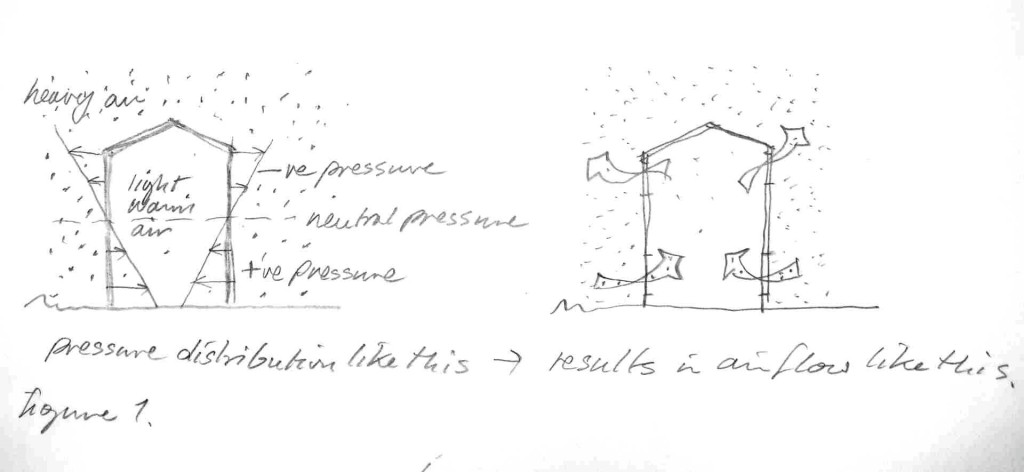 heavy air
light
warm
air
-ve pressure
neutral pressure
+ve pressure
pressure distribution like this → results in airflow like this.
figure 1.